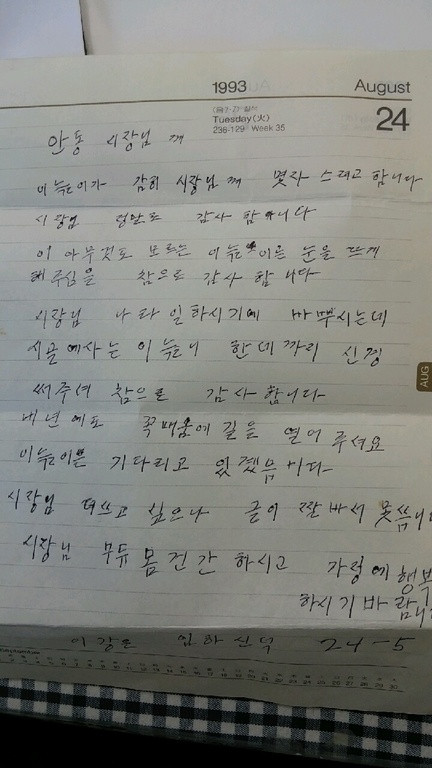 1993 August
Tuesday(火)
236-129 Week 35
24
안동 시장님 께
이 늙은이가 감히 시장님 께 몇자 스려고 합니다
시장님 정말로 감사 합니다
이 아무것도 모르는 이 늙은이은 눈을 뜨게
해 주심을 참으로 감사 합니다
시장님 나라 일하시기에 바쁘시는데
시골에 사는 이 늙은니 한데 까리 신경
써주셔 참으로 감사합니다
내년에도 꼭 배움에 길을 열어 주셔요
이 늙이는 기다리고 있겠읍니다
시장님 더쓰고 싶으나 글이 짤바서 못씁니
시장님 부듀 몸건간 하시고 가정에 행복
하시기 바람니
AUG
임하 신덕 24-5